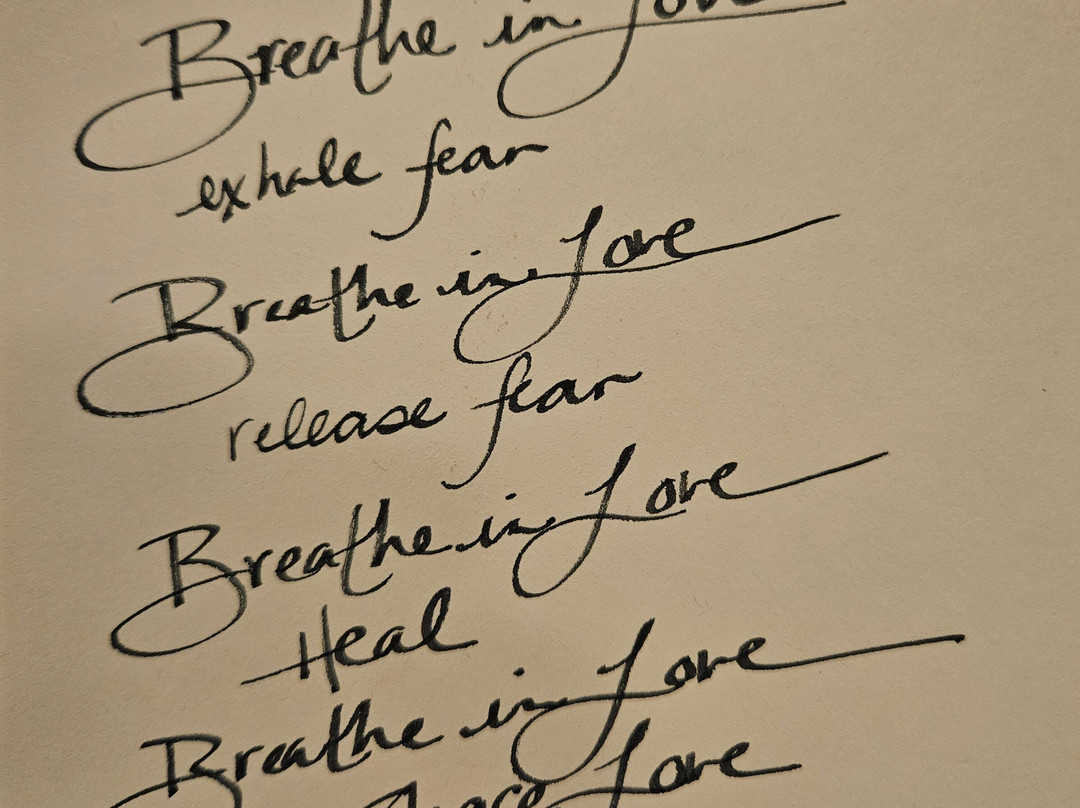 Breathe in Love
exhale fear
Breathe in Love
release fear
Breathe in Love
Heal
Breathe in Love
Love